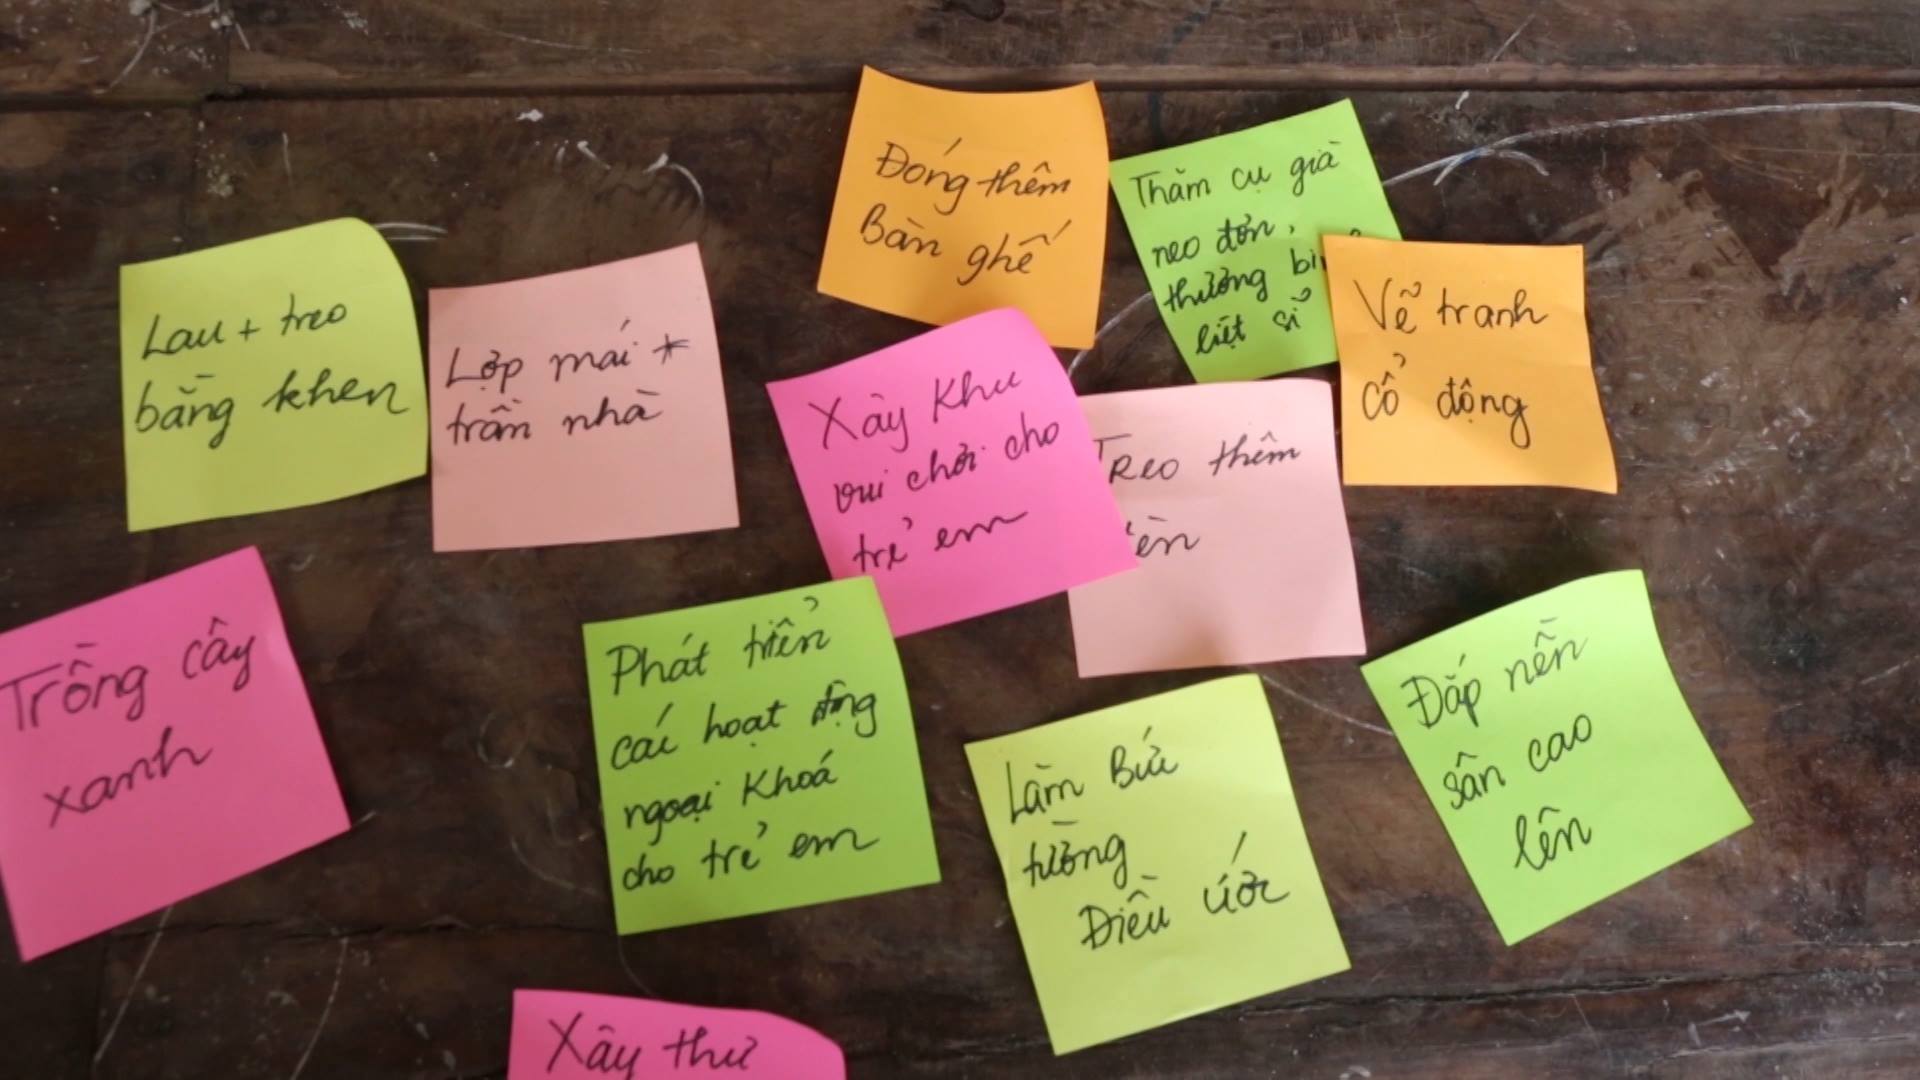 Đóng thêm
Bàn ghế
Thăm cụ già
neo đơn,
thương
liệt sĩ
Vẽ tranh
cổ động
Lau + treo
bằng khen
Lợp mái +
trần nhà
Xây khu
vui chơi cho
trẻ em
Treo thêm
Trồng cây
xanh
Phát triển
các hoạt động
ngoại khoá
cho trẻ em
Làm Bức
tường
Điều ước
Đắp nền
sân cao
lên
Xây thư